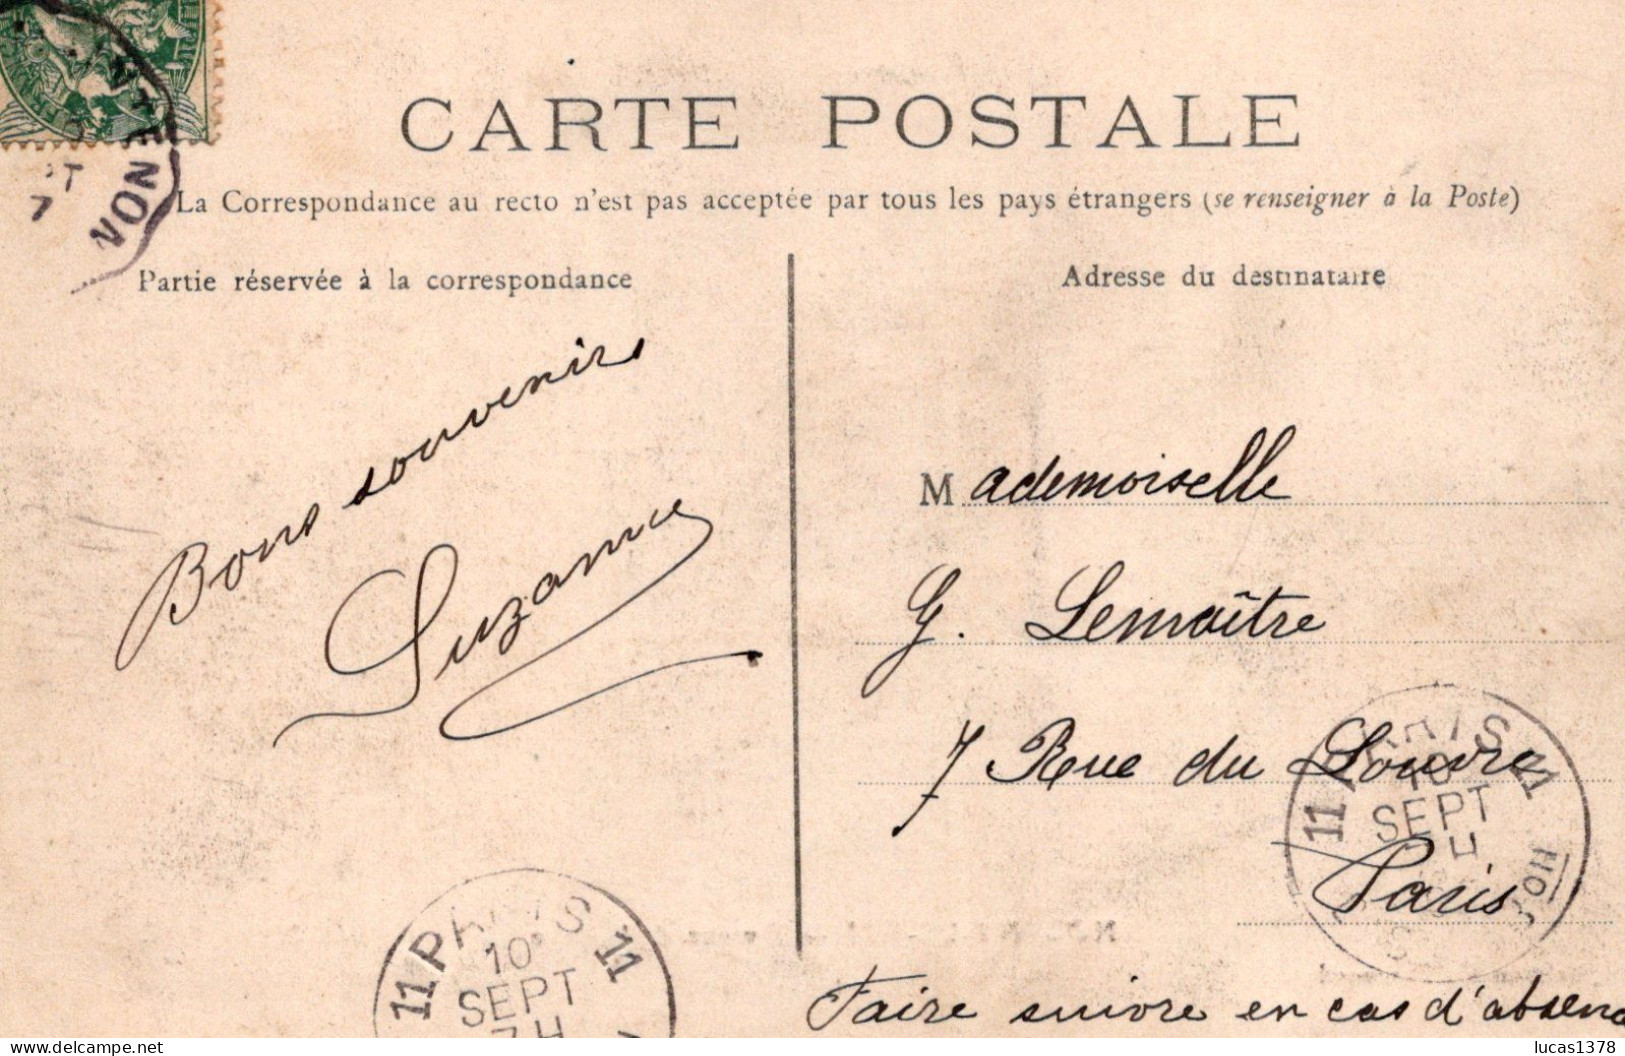 CARTE POSTALE
La Correspondance au recto n'est pas acceptée par tous les pays étrangers (se renseigner à la Poste)
Partie réservée à la correspondance
Adresse du destinataire
Bons souvenirs
Suzanne
Mademoiselle
G. Lemaître
7 Rue du Louvre
Paris
Faire suivre en cas d'absenc
11 PARIS 11
10
SEPT
7 H
11 PARIS 11
10
SEPT
H
7
lucas1378